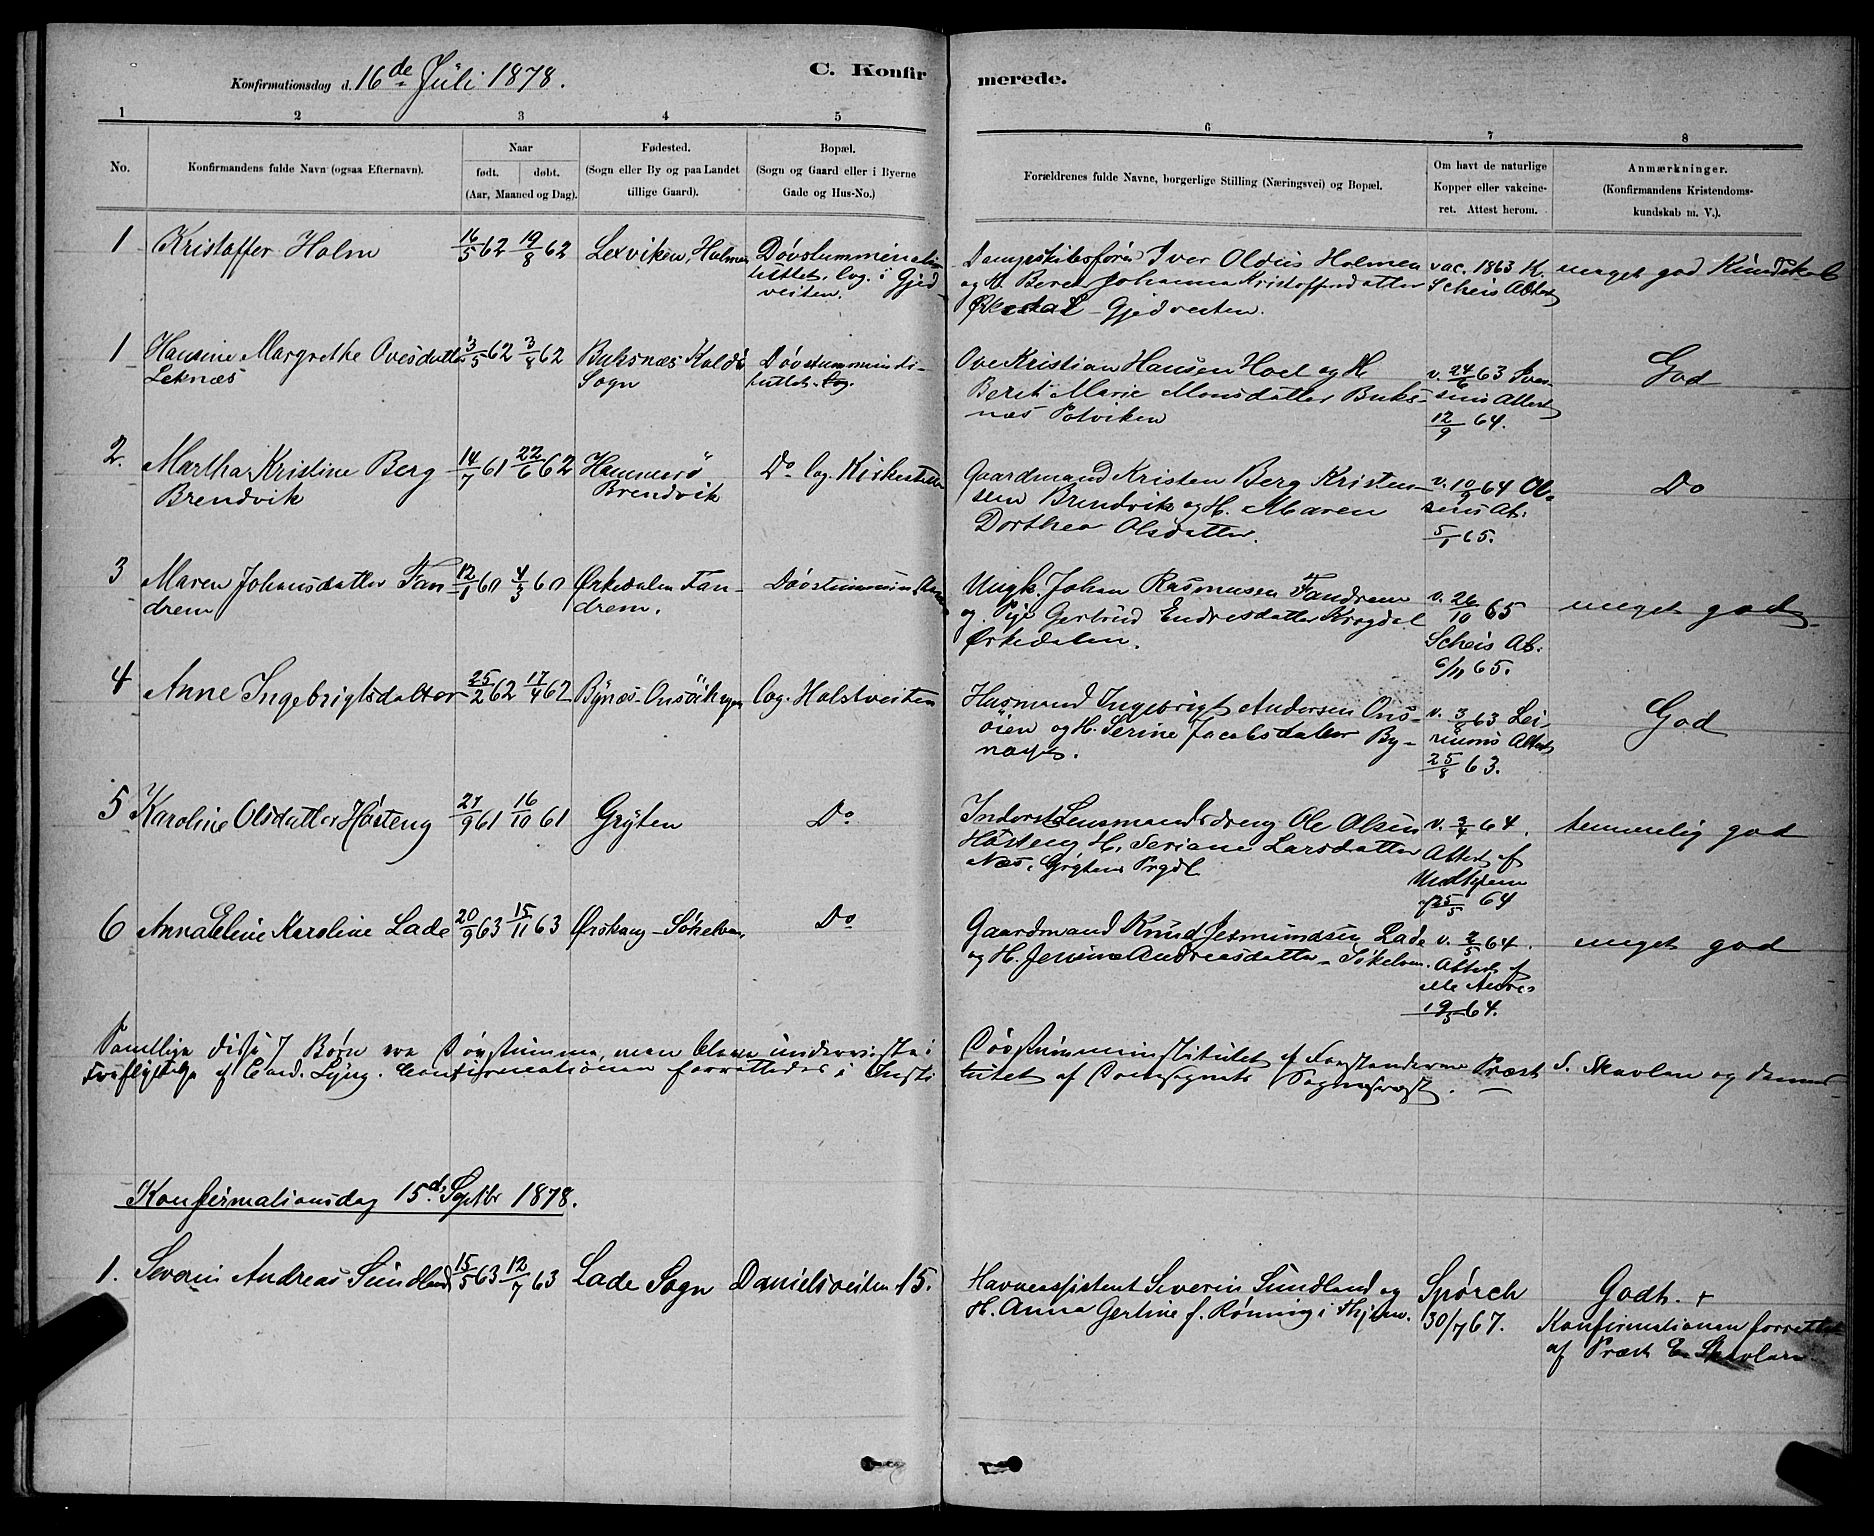 Konfirmationsdag d. 16de Juli 1878.
C. Konfirmerede.
1 2 3 4 5 6 7 8
No.
Konfirmandens fulde Navn (ogsaa Efternavn).
Naar
født. døbt.
(Aar, Maaned og Dag).
Fødested.
(Sogn eller By og paa Landet
tillige Gaard).
Bopæl.
(Sogn og Gaard eller i Byerne
Gade og Hus-No.)
Forældrenes fulde Navne, borgerlige Stilling (Næringsvei) og Bopæl.
Om havt de naturlige
Kopper eller vakcine-
ret. Attest herom.
Anmærkninger.
(Konfirmandens Kristendoms-
kundskab m. V.).
1 Kristoffer Holm 16/5 62 19/8 62 Lexviken, Holmen
Døvstummeinsti
tuttet. Log. i Gjed-
veiten.
Dampskibsfører Iver Olaus Holmen
og H. Beret Johanna Kristoffersdatter
Gjedveiten.
vac. 1863 K.
Scheis Attest
meget god Kundskab
1 Hansine Margrethe Ovesdatter
Leknæs
3/5 62 3/8 62
Buksnæs
Sogn
Døvstummeinsti-
tuttet. Log.
Ove Kristian Hansen Hoel og H.
Beret Marie Monsdatter Buks-
næs Potviken
v. 24/6 63
Attest
12/9 64.
God
2. Martha Kristine Berg
Brendvik
14/7 61 22/6 62
Hammerø
Brendvik
Do Log.
Gaardmand Kristen Berg Kristen-
sen Brendvik og H. Maren
Dorthea Olsdatter.
v. 10/9 64 Ol-
sens At:
5/1 65.
Do
3 Maren Johansdatter Fan-
drem
12/1 60 4/3 60
Ørkedalen Fan-
drem.
Døvstummein
Ungk. Johan Rasmusen Fandrem
og Pige Gertrud Endresdatter Krogdal
Ørkedalen.
v. 26/10 65
Scheis At.
6/11 65.
meget god
4 Anne Ingebrigtsdatter 25/2 62 17/4 62
Bynæs
Log. Holstveiten
Husmand Ingebrigt Andersen Ons-
øien og H. Serine Jacobsdatter By-
næsset.
v. 3/8 63
Attest
25/8 63.
God
5 Karoline Olsdatter Høsteng 27/9 61 16/10 61 Gryten Do
Inderst Lensmandsdreng Ole Olsen
Høsteng H. Seriane Larsdatter
Næs, Grytens Prgd
v. 3/4 64.
Attest af
25/5 64
temmelig god
6 Anna Eline Karoline Lade 20/9 63 15/11 63 Ørskoug - Søkelven Do
Gaardmand Knud Jesmundsen Lade
og H. Jensine Andreasdatter - Søkelven.
v. 2/5 64.
Attest af
19/5 64.
meget god
Samtlige disse 7 Børn var Døvstumme, men bleve underviste i Døvstummeinstitutet af Forstanderne Præst S. Skavlan og dennes
af Cand. Lyng. Confirmationen forrettedes i Insti
tutet af Domsognets Sognepræst.
Konfirmationsdag 15d. Septbr 1878.
1. Severin Andreas Sundland 15/5 63 12/7 63 Lade Sogn Danielsveiten 15.
Havneassistent Severin Sundland og
H. Anna Gertine f. Rønning i Thjem.
Spørch
30/7 67.
Godt. +
Konfirmationen forrettet
af Præst E. Skavlan.